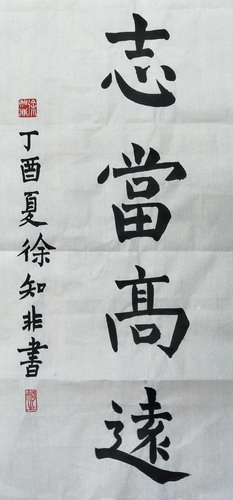 志當高遠
丁酉夏徐知非書